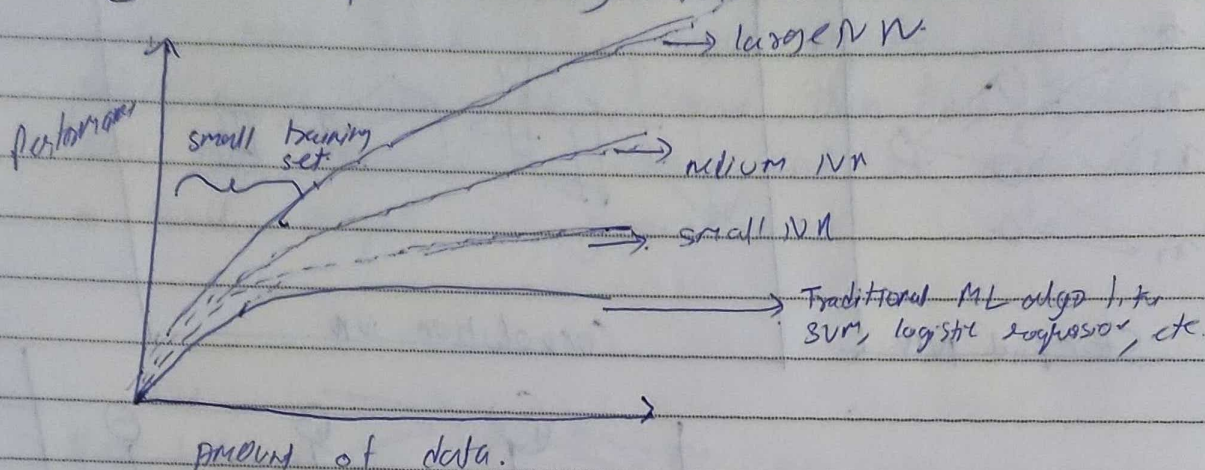 large NN
Performan
small training
set
medium NN
small NN
Traditional ML algo like
SVM, logistic regression, etc.
Amount of data.